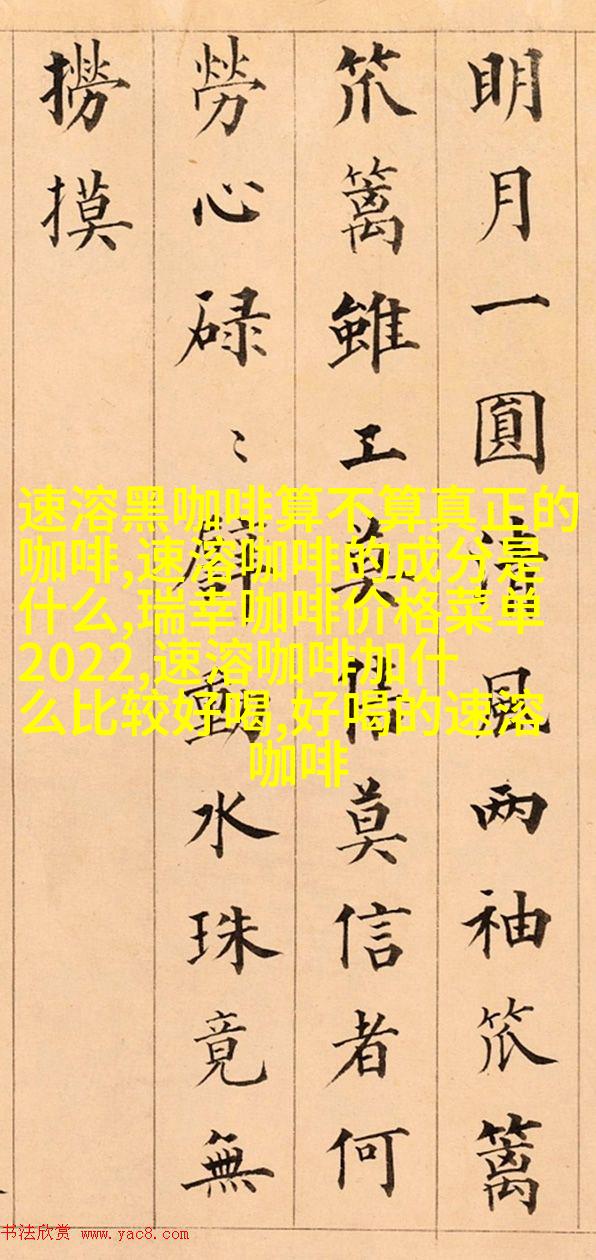 明月一圓清風两袖笊篱
笊篱雖工莫莫信者何
勞心碌々動水珠竟無
撈摸
速溶黑咖啡算不算真正的
咖啡,速溶咖啡的成分是
什么,瑞幸咖啡价格菜单
2022,速溶咖啡加什
么比较好喝,好喝的速溶
咖啡
书法欣赏 www.yac8.com